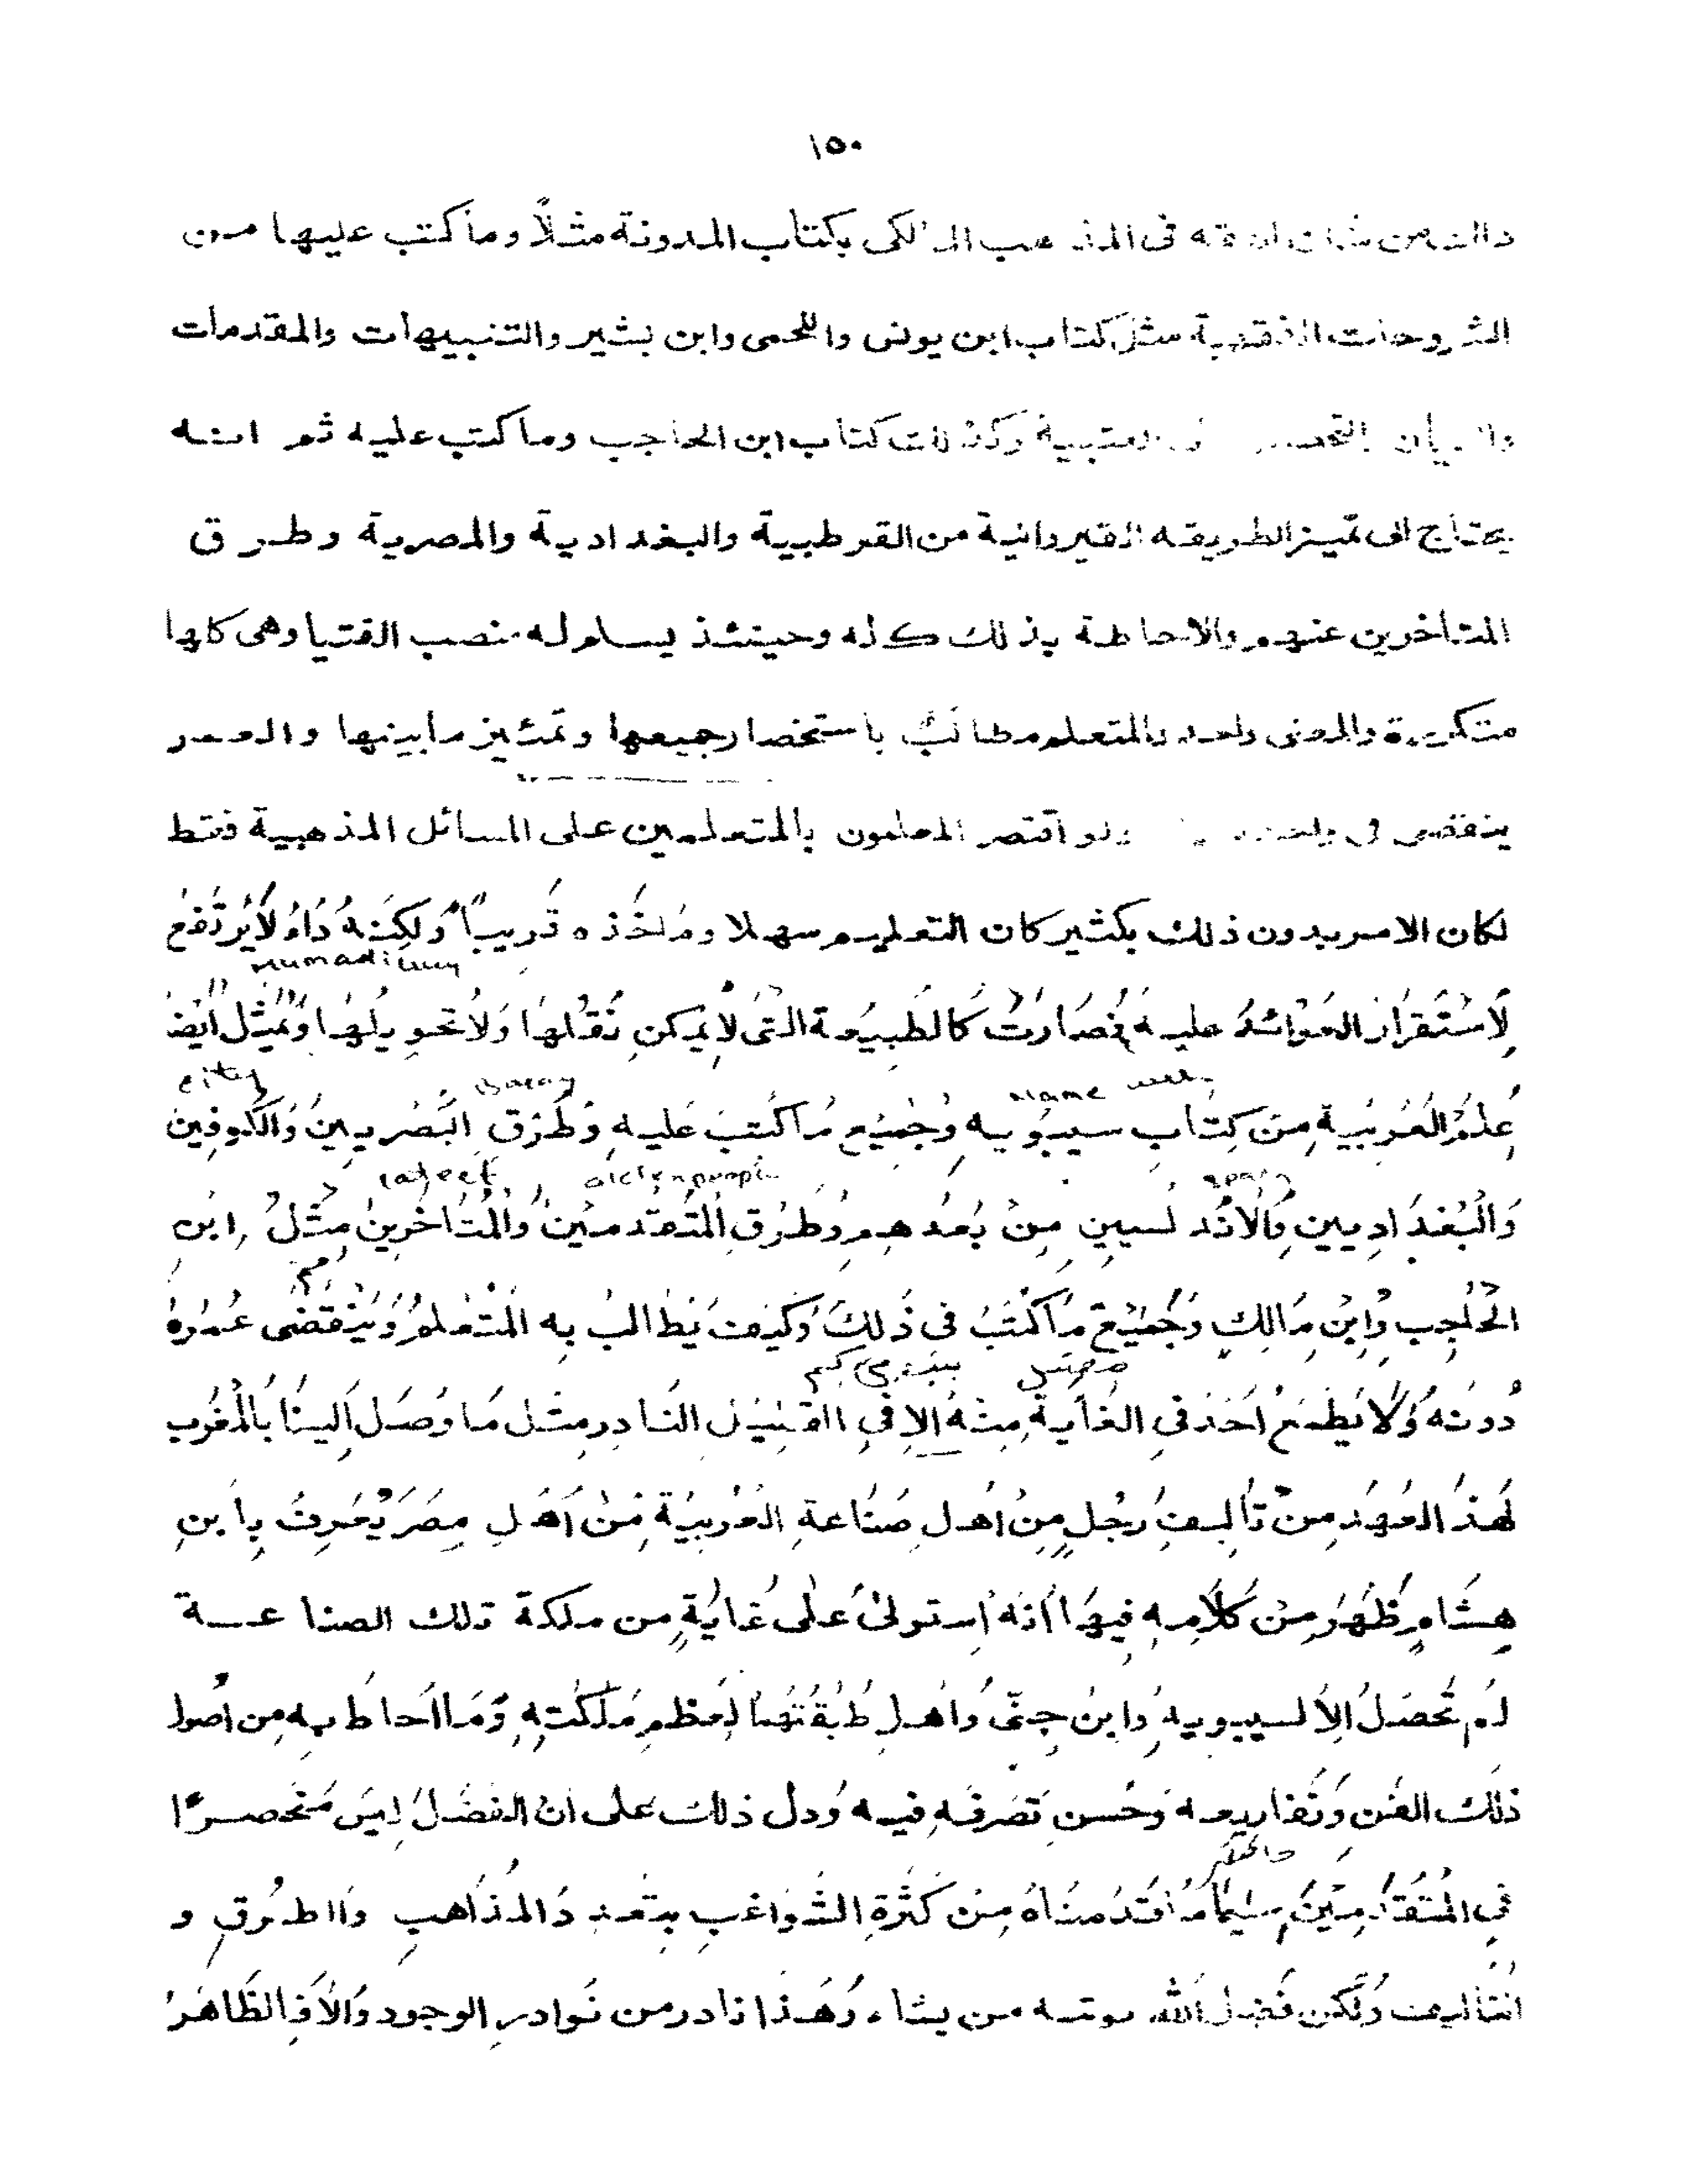 ١٥٠
ذالك من شان الفقه فى المذهب المالكى بكتاب المدونة مثلاً وما كتب عليها من
الشروحات الفقهية مثل كتاب ابن يونس واللخمى وابن بشير والتنبيهات والمقدمات
والبيان والتحصيل العتبية وكذلك كتاب ابن الحاجب وما كتب عليه ثم انه
يحتاج الى تميز الطريقه القيروانية من القرطبية والبغدادية والمصرية وطرق
المتأخرين عنهم والاحاطة بذلك كله وحينئذ يسلم له منصب الفتيا وهى كلها
متكررة والمعنى واحد والمتعلم مطالب باستحضار جميعها وتمئيز ما بينها والعمر
ينقضى فى واحد ولو اقتصر المعلمون بالمتعلمين على المسائل المذهبية فقط
لكان الامر بدون ذلك بكثير كان التعليم سهلا ومأخذه قريباً وَلكِنهُ دَاءُ لاَيُرتَفعَ
لِاَسْتَقرَار العَوَائدُ عليه فصَارَتُ كالطَبيَعة التى لاَ يمكن نَقلهَا وَلاَ تحويلهَا وَنُمثِل أيضاَ
عِلمُ العَرَبيةِ مِنَ كِتَاب سيبَويه وَجَميَع مَاكُتبَ عَليه وَطرَق البَصَريينَ وَالكوفِين
city Basay Name
وَالبُغدَادِيين وَالاَندلسيين مِنْ بَعدهم وَطرُقِ المتَقدمينَ وَالمُتَاخرِينَ مِثلُ ابن
الحَاجِب وَابنِ مَالِك وَجَميعَ مَاكُتبُ فى ذَلكَ وَكَيفَ يَطالبُ به المتَعلمُ وَيَنقضى عُمرَهُ
دُونهُ وَلاَ يَطمَعُ اَحَد فى الغَايةِ مِنهُ إلا فى القليَل النادر مِثل مَا وَصَل إلينَا بالمَغرب
لَهذَ العَهَد مِنَ تَأليفِ رَجُلٍ مِنُ اهلِ صَنَاعةِ العَرَبيَة مَنْ اَهَلِ مِصَر يُعَرفُ بِابنِ
هِشَامٍ ظَهَرَ مِنْ كَلاَمِه فيهَا أنهُ إستولىَ عَلَى غَايَةٍ من ملكة تلك الصناعة
لم تحصَلُ إلاَ لسيبويه وَابنُ جِنّى وَاهل طَبَقَتهَمَا لعِظم مَلكَتِهِ وَمَا اَحاطَ به مِن اصُول
ذلكَ الفَن وَتَفَاريعه وَحُسن تَصَرفهِ فيه وَدل ذلكَ على انَ الفضَلَ ليَسَ مَنحصراً
فى المُتَقَدِمِينَ سِيَمَا مَا قَدَمنَاهُ مِنَ كَثْرَةِ الشَواغبِ بتَعددَ المذَاهبِ وَاالطرُقِ و
التَاليف وَلَكن فَضل الله يوته من يشاء وَهَذا نادر من نَوادر الوجود وَالاَ فالظَاهرُ